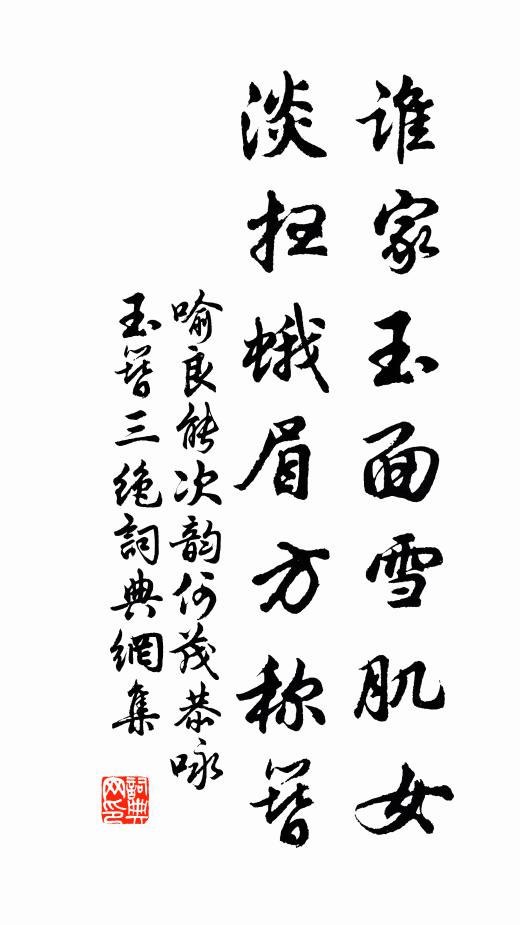 谁家玉面雪肌女
淡扫蛾眉方称簪
喻良能次韵何茂恭咏
玉簪三绝詞典網集
詞典网印